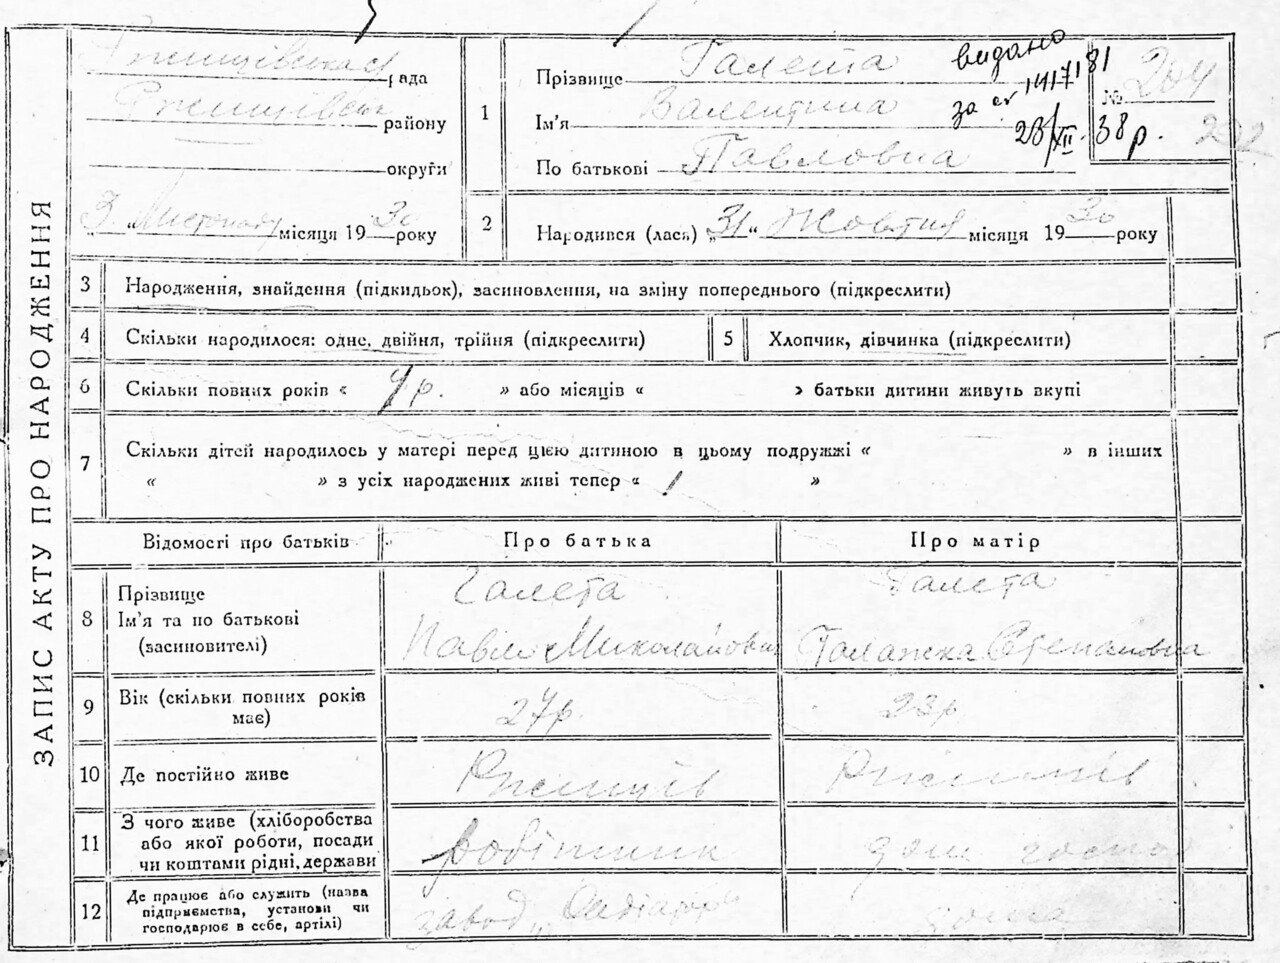 ЗАПИС АКТУ ПРО НАРОДЖЕННЯ
Ржищівська рада
Ржищівськ району
округи
"3" Листопаду місяця 1930 року
1
Прізвище Галета
Ім'я Валентина
По батькові Павловна
видано
за № 1417181
28/XII 38 р.
№ 204
292
2
Народився (лася) „31“ Жовтня місяця 1930 року
3 Народження, знайдення (підкидьок), засиновлення, на зміну попереднього (підкреслити)
4 Скільки народилося: одне, двійня, трійня (підкреслити)
5 Хлопчик, дівчинка (підкреслити)
6 Скільки повних років « 4 р. » або місяців « » батьки дитини живуть вкупі
7 Скільки дітей народилось у матері перед цією дитиною в цьому подружжі « » в інших
« » з усіх народжених живі тепер « 1 »
Відомості про батьків Про батька Про матір
8 Прізвище
Ім'я та по батькові
(засиновителі)
Галета
Павло Миколайович
Галета
Галажка Степановна
9 Вік (скільки повних років
має)
27 р.
23 р
10 Де постійно живе
Ржищів
Ржищів
11 З чого живе (хліборобства
або якої роботи, посади
чи коштами рідні, держави
робітник
дом господ
12 Де працює або служить (назва
підприємства, установи чи
господарює в себе, артілі)
завод „Радіатор“
дома